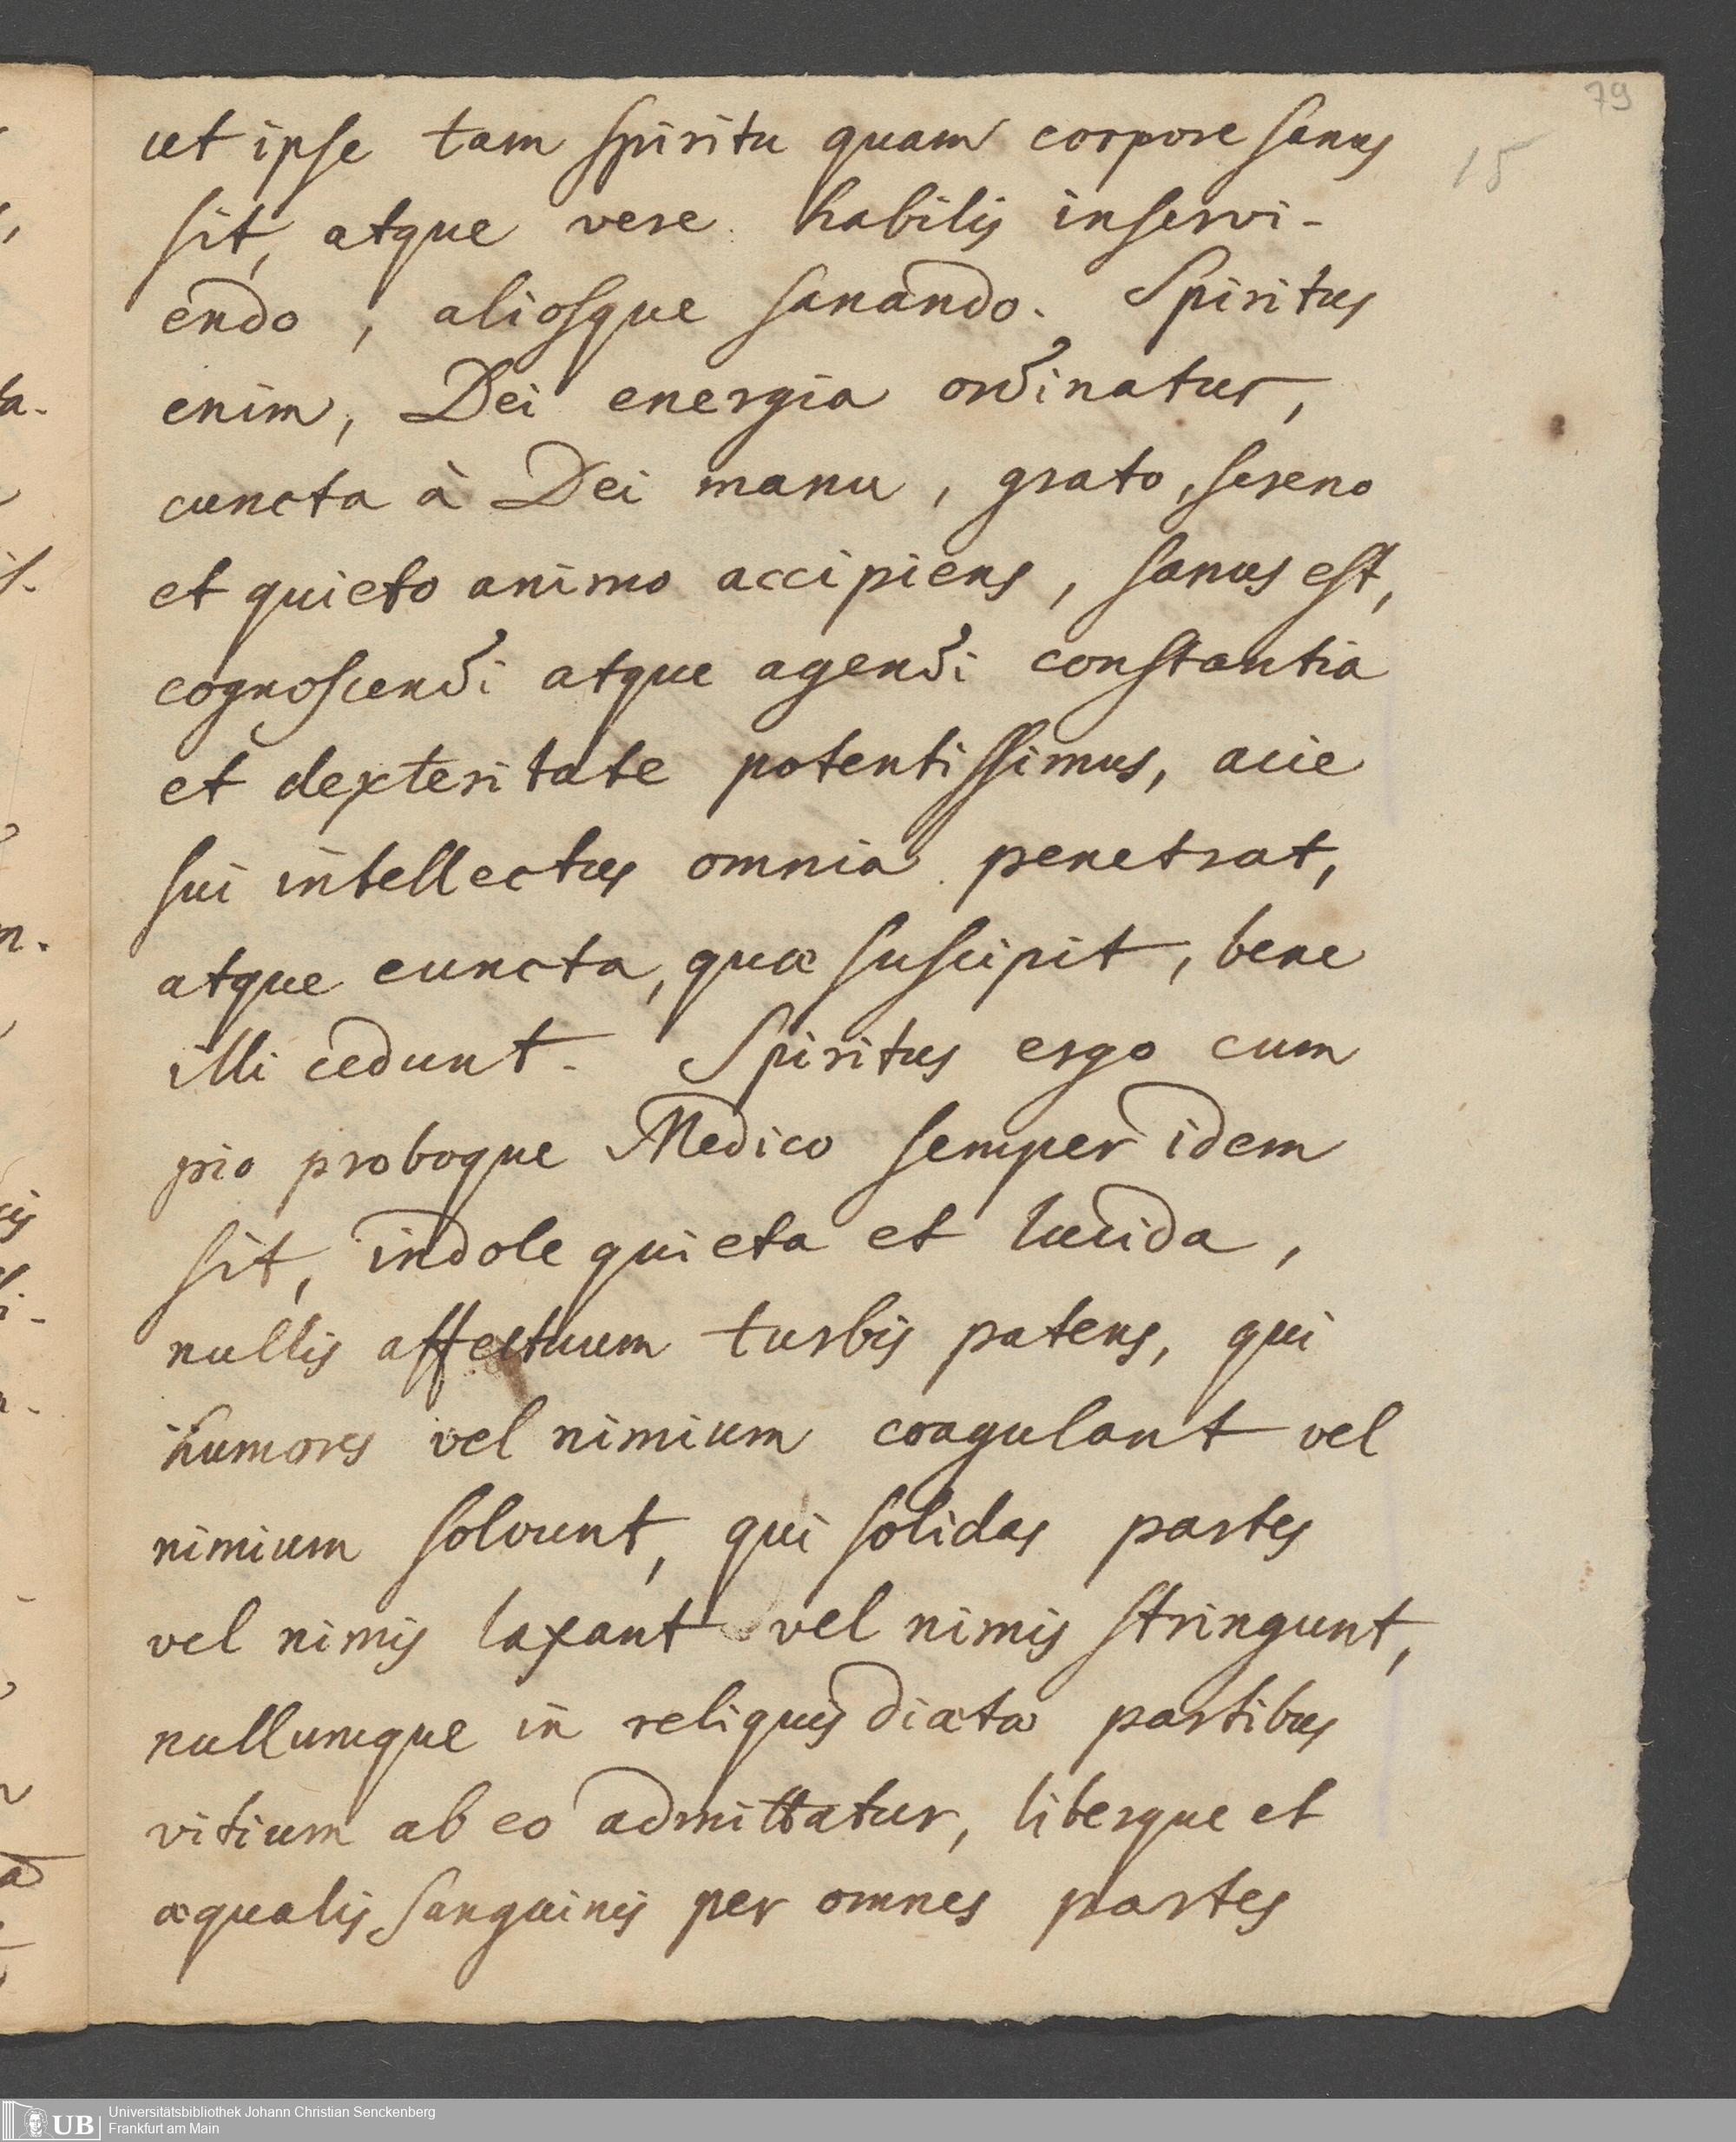 79
15
ut ipse tam spiritu quam corpore sanus
sit, atque vere habilis inservi-
endo, aliosque sanando. Spiritus
enim, Dei energia ordinatus,
cuncta à Dei manu, grato, sereno
et quieto animo accipiens, sanus est,
cognoscendi atque agendi constantia
et dexteritate potentissimus, acie
sui intellectus omnia penetrat,
atque cuncta, quæ suscipit, bene
illi cedunt. Spiritus ergo cum
pio proboque Medico semper idem
sit, indole quieta et lucida,
nullis affectuum turbis patens, qui
humores vel nimium coagulant vel
nimium solvunt, qui solidas partes
vel nimis laxant vel nimis stringunt,
nullumque in reliquis diætæ partibus
vitium ab eo admittatur, liberque et
æqualis sanguinis per omnes partes
UB Universitätsbibliothek Johann Christian Senckenberg
Frankfurt am Main